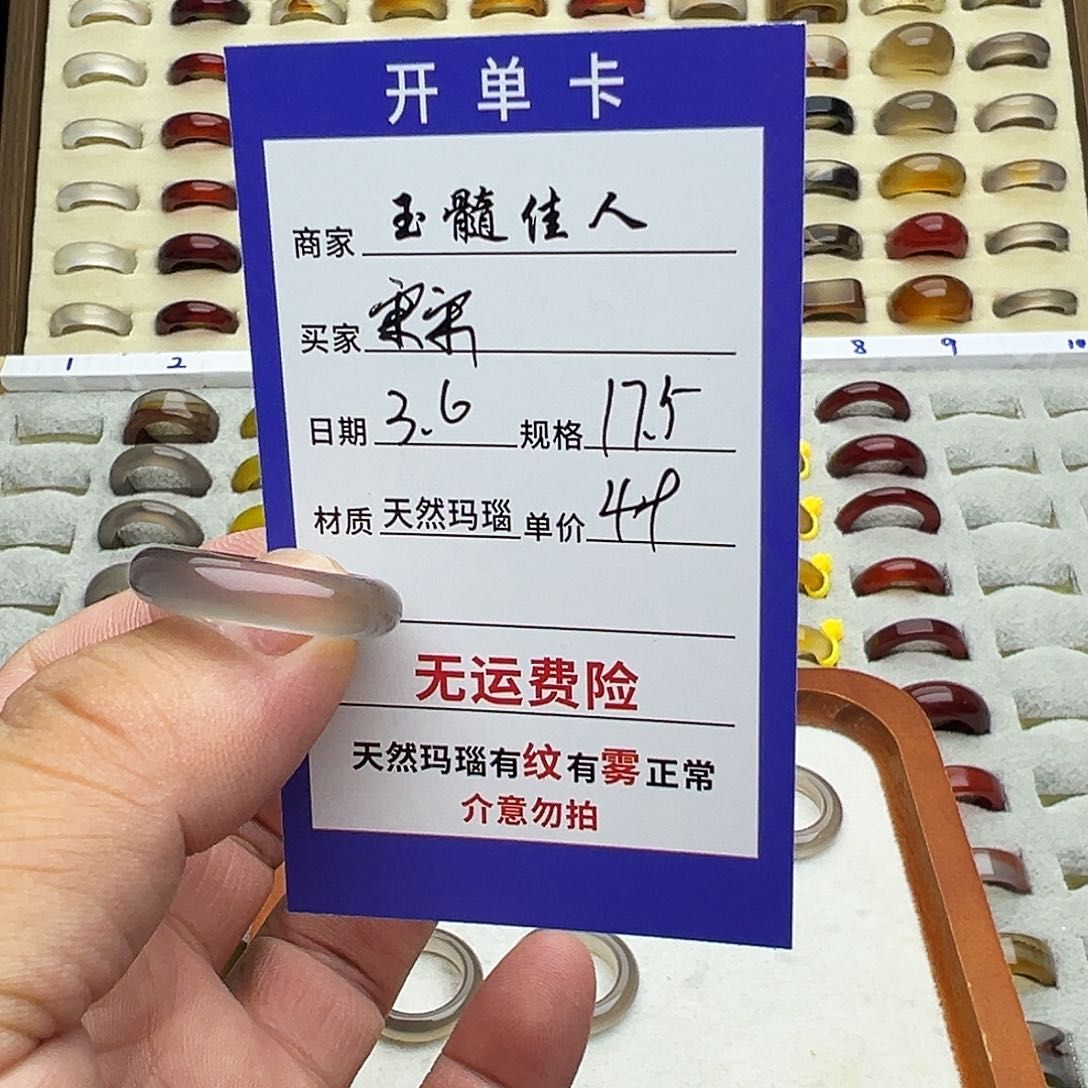 开单卡
商家 玉髓佳人
买家
日期 3.6 规格 17.5
材质 天然玛瑙 单价 49
无运费险
天然玛瑙有纹有雾正常
介意勿拍
1 2 8 9 10